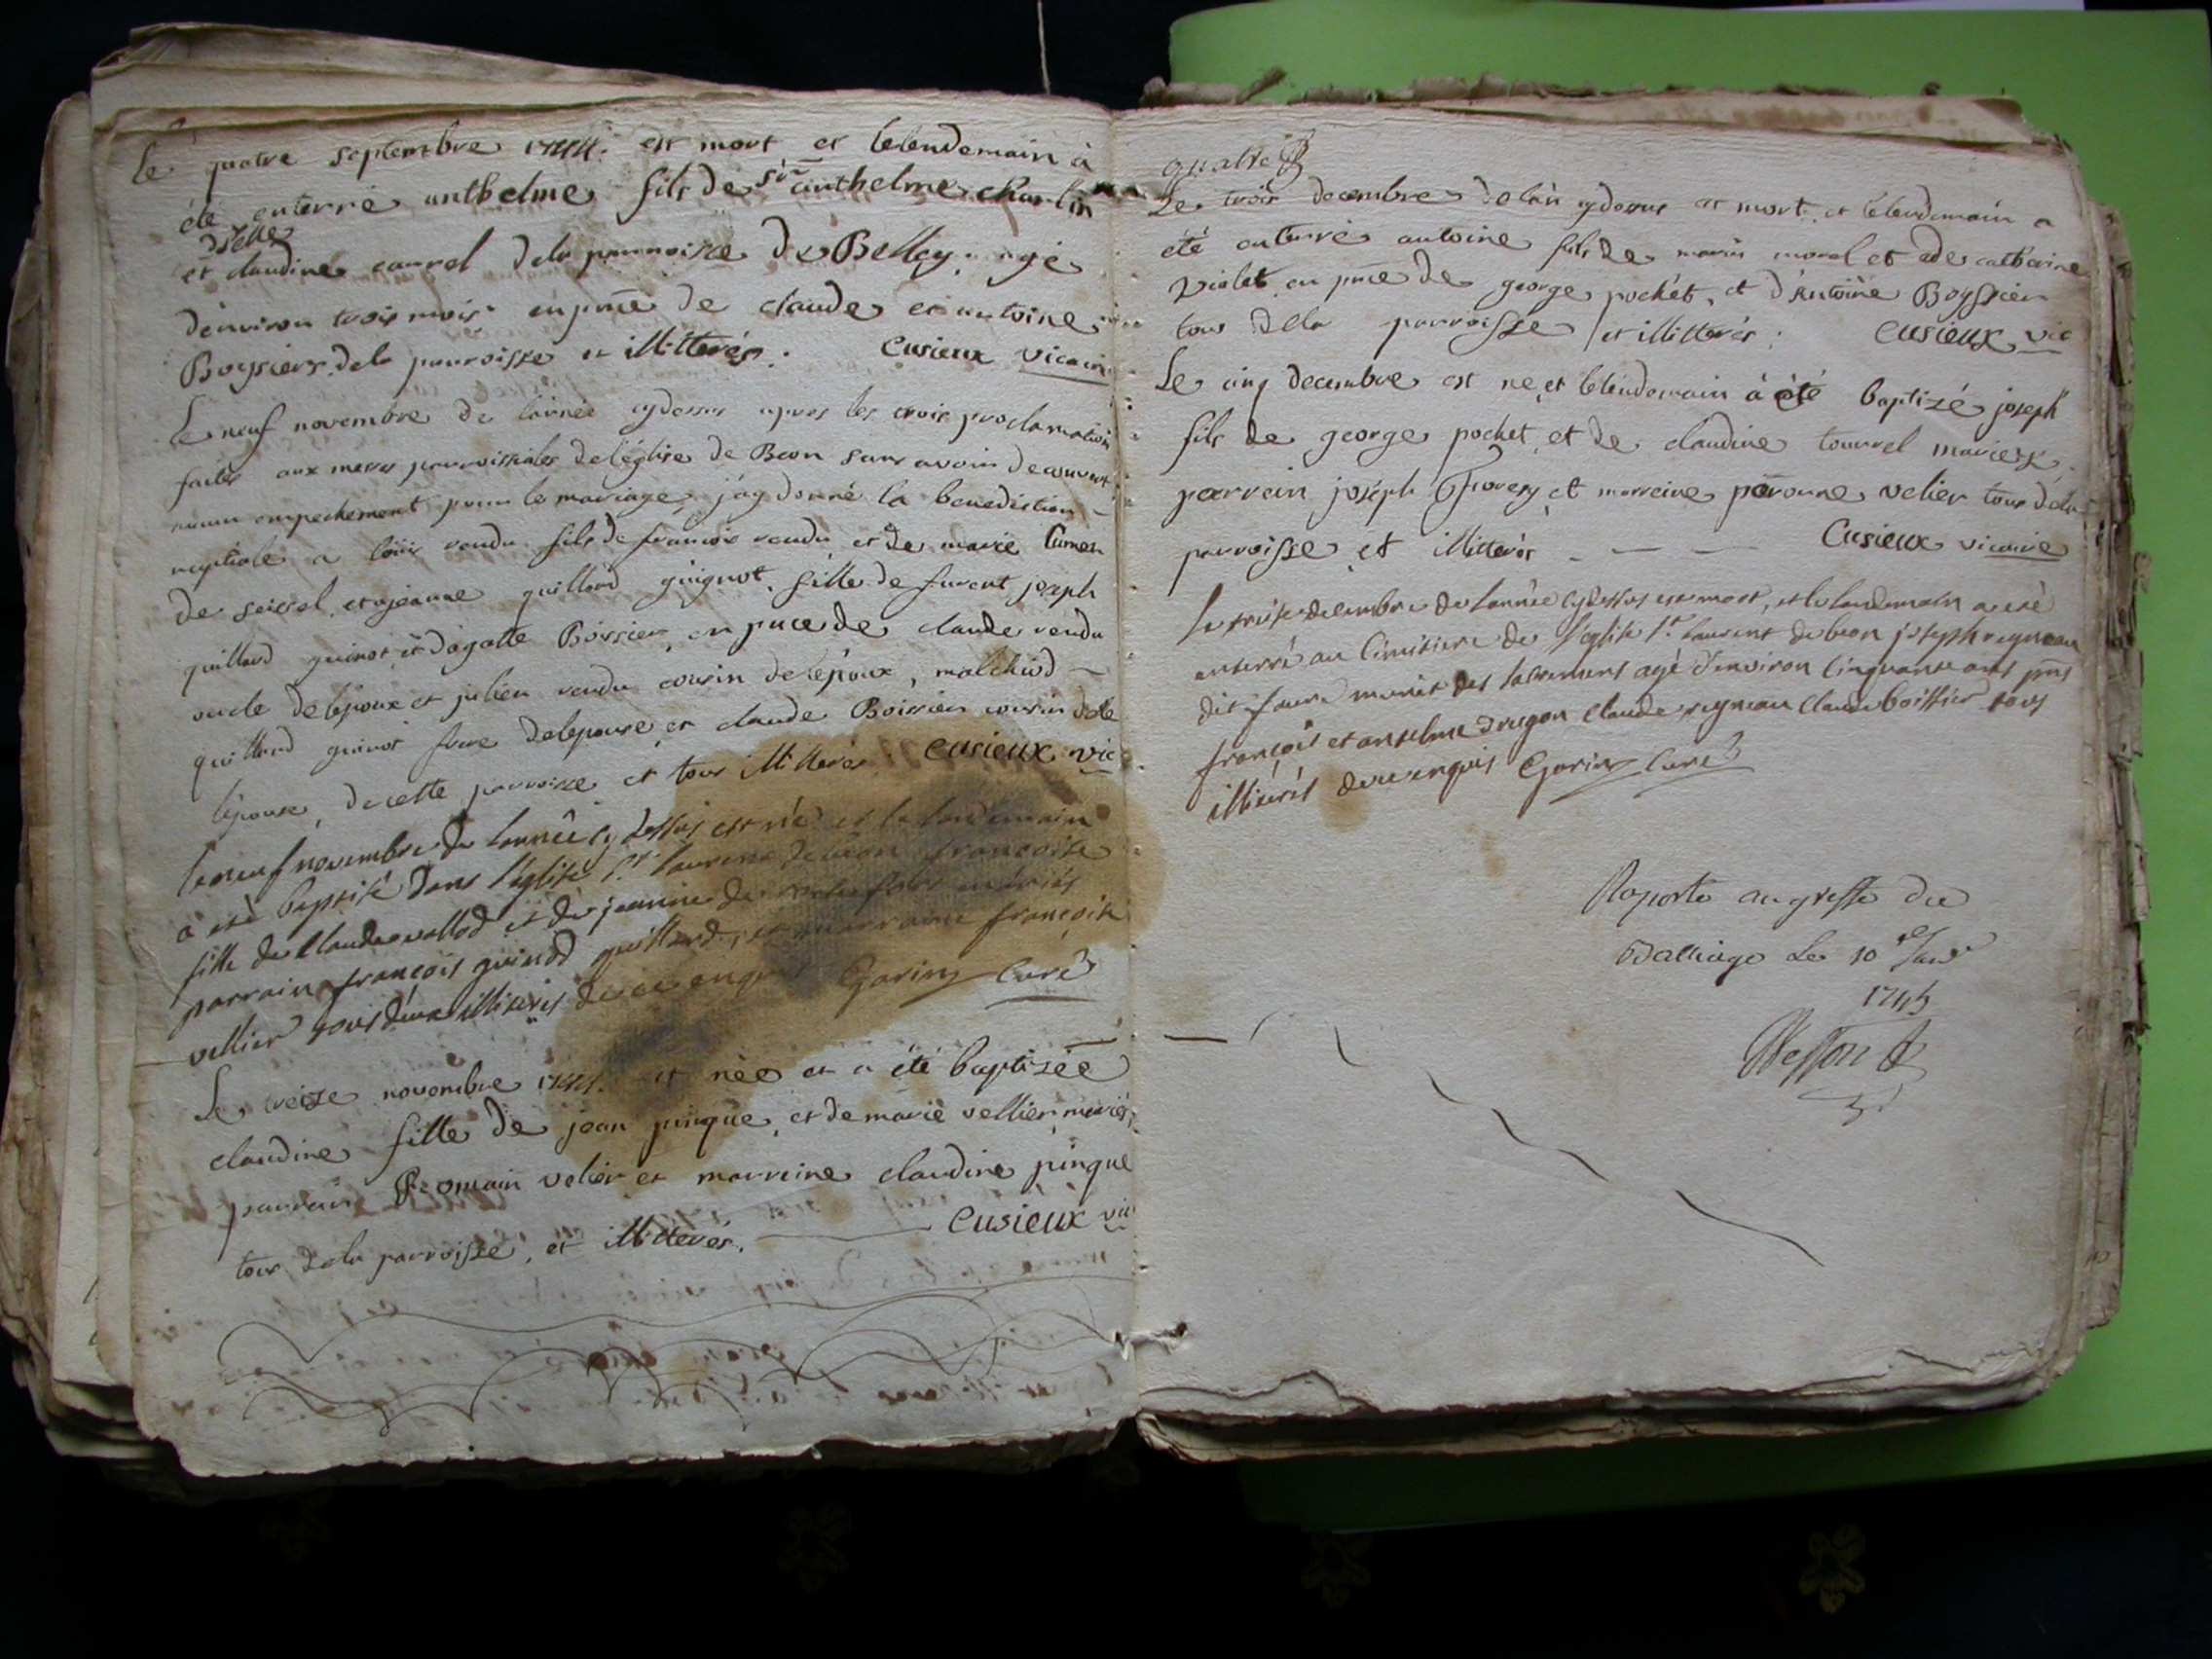 Le quatre septembre 1744. est mort et lelendemain à
été enterré anthelme fils de sr anthelme charlin
et dlle claudine caurel dela parroisse de Belley agé
denviron trois mois en pnce de claude et antoine
Boysiers dela parroisse et illitterés. Cusieux vicaire
Le neuf novembre de lannée cydessus apres les trois proclamations
faites aux messes parroissiales deléglise de Beon sans avoir decouvert
aucun empechement pour le mariage, j'ay donné la benediction
nuptiale a loüis rendu fils de francois rendu et de marie
de seissel et a jeanne guillerd guignot fille de furent joseph
guillerd guinot et d'agatte Boissier en pnce de claude rendu
oncle delépoux et julien rendu cousin de lépoux, malchiod
guillerd guinot frere delepouse et claude Boissier cousin dele
lépouse, de cette parroisse et tous illitterés Cusieux vic
le neuf novembre de lannée cy dessus est née et le landemain
à eté baptisé dans l'eglise st laurens de beon francoise
fille de claude vallod et de jeanne de mariés
parrain françois guinod guillerd, et marraine françoise
vellier tous deux illiterés de ce enquis Gorin Curé
Le treize novembre 1744. est née et a été baptisée
claudine fille de jean pinque, et de marie vellier mariés,
parrein Romain velier et marreine claudine pinque
tous dela parroisse, et illitterés. Cusieux vic
quatre
Le trois decembre de lan cydessus est mort et lelendemain a
été enterré antoine fils de marin morel et de catherine
violet en pnce de george pochet, et d'Antoine Boyssier
tous dela parroisse et illitterés. Cusieux vic
Le cinq decembre est né et lelendemain à été baptizé joseph
fils de george pochet et de claudine tournel mariez
parrein joseph et marreine peronne velier tous dela
parroisse et illitterés Cusieux vicaire
Le treise decembre de lannée cy dessus est mort, et le landemain a eté
enterré au cimitiere de l'eglise st laurent de beon joseph reyneau
dit faure muni des sacremens agé d'environ cinquante ans pnts
françois et anselme dragon claude reyneau claude boissier tous
illiterés de ce enquis Gorin Curé
Raporté au greffe du
Bailliage Le 10 Janv
1745